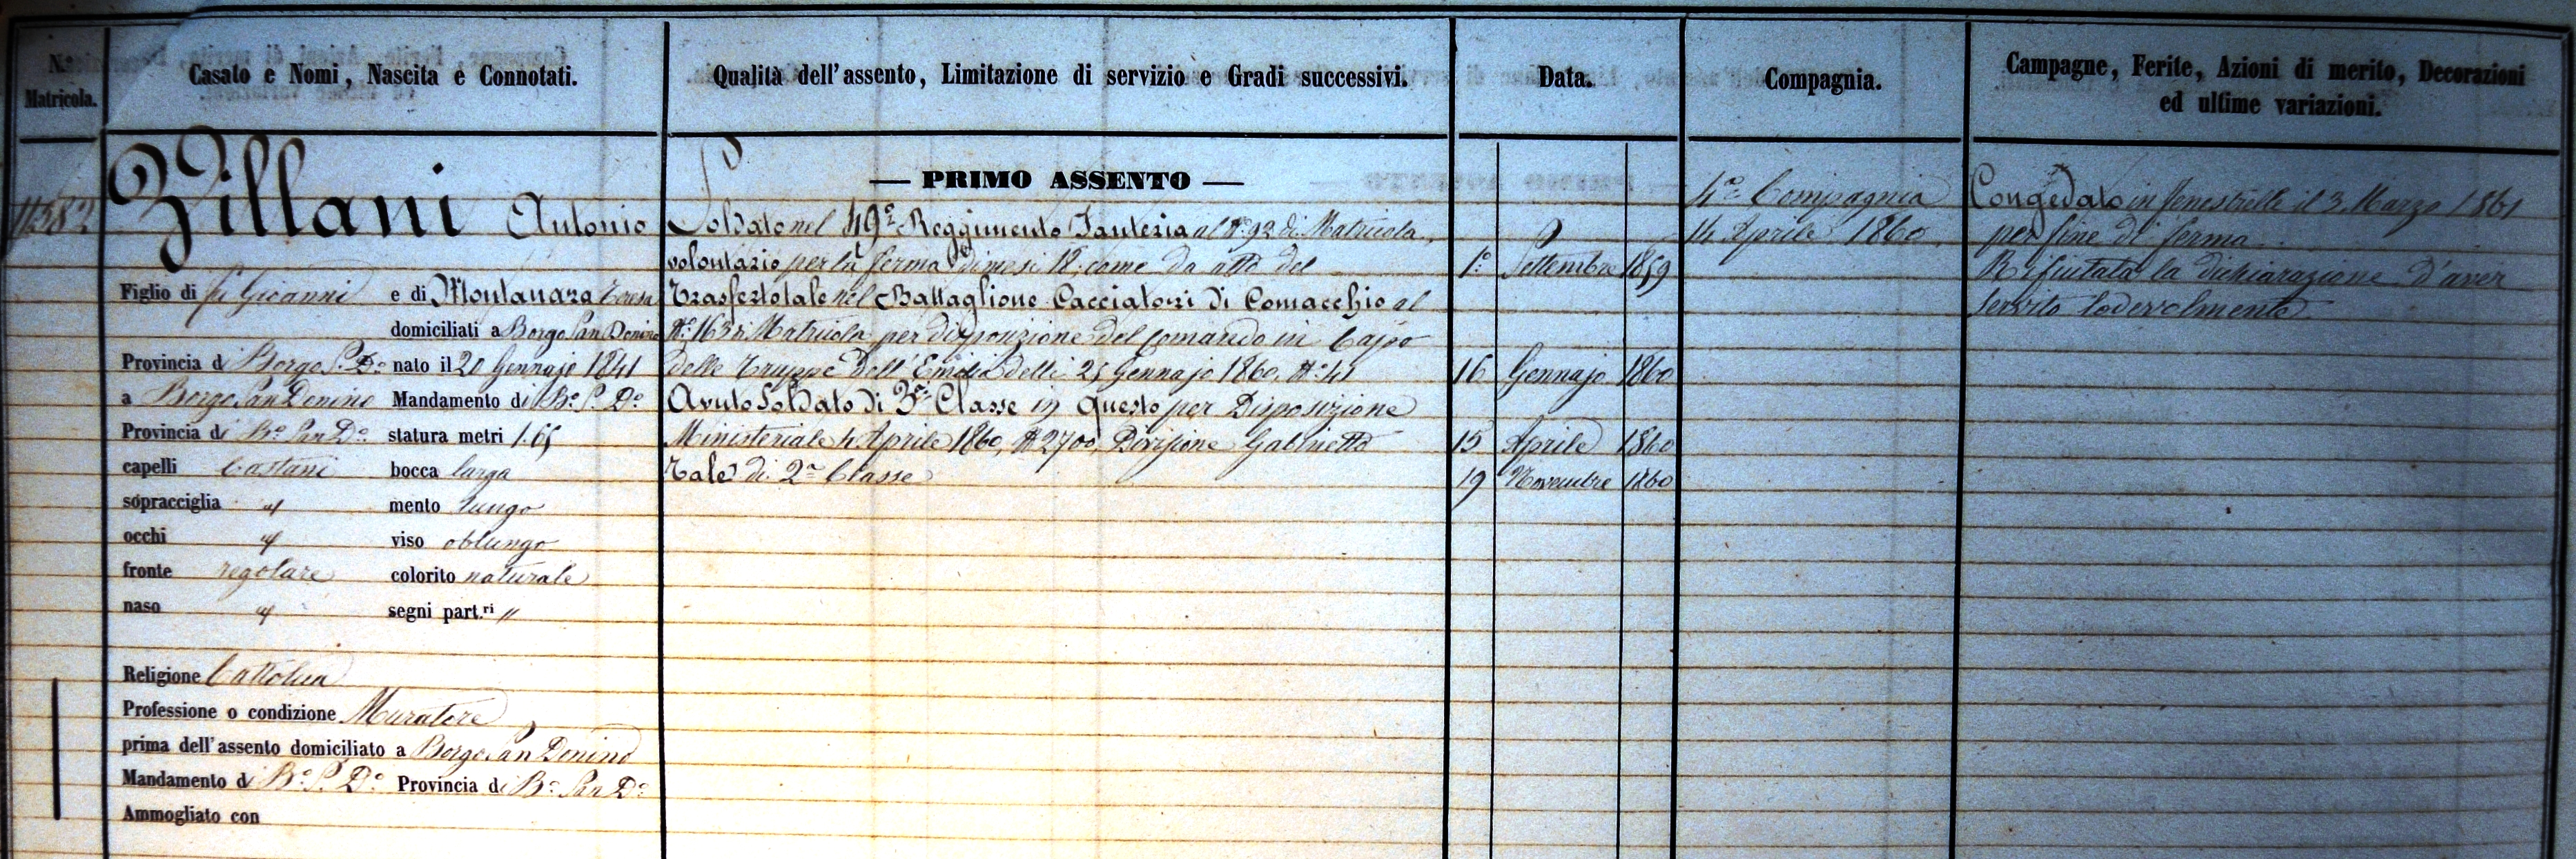 N.º Matricola.
Casato e Nomi, Nascita e Connotati.
Qualità dell'assento, Limitazione di servizio e Gradi successivi.
Data.
Compagnia.
Campagne, Ferite, Azioni di merito, Decorazioni
ed ultime variazioni.
11582
Zillani Antonio
Figlio di fu Giovanni e di Montanara Teresa
domiciliati a Borgo San Donino
Provincia di Borgo S. Dº nato il 20 Gennajo 1841
a Borgo San Donino Mandamento di Bº S. Dº
Provincia di Bº San Dº statura metri 1.65
capelli Castani bocca larga
sopracciglia " mento lungo
occhi " viso oblungo
fronte regolare colorito naturale
naso " segni part.ri "
Religione Cattolica
Professione o condizione Muratore
prima dell'assento domiciliato a Borgo San Donino
Mandamento di Bº S. Dº Provincia di Bº San Dº
Ammogliato con
— PRIMO ASSENTO —
Soldato nel 49º Reggimento Fanteria al Nº 92 di Matricola,
volontario per la ferma di mesi 18, come da atto del 1º Settembre 1859
Trasferto tale nel Battaglione Cacciatori di Comacchio al
Nº 163 di Matricola per disposizione del Comando in Capo
delle Truppe dell'Emilia delli 25 Gennajo 1860, Nº 41 16 Gennajo 1860
Avuto Soldato di 3ª Classe in questo per Disposizione
Ministeriale 4 Aprile 1860, Nº 2700, Divisione Gabinetto 15 Aprile 1860
Tale di 2ª Classe 19 Novembre 1860
4ª Compagnia
14 Aprile 1860.
Congedato in Fenestrelle il 3 Marzo 1861
per fine di ferma.
Rifiutata la dichiarazione d'aver
servito lodevolmente